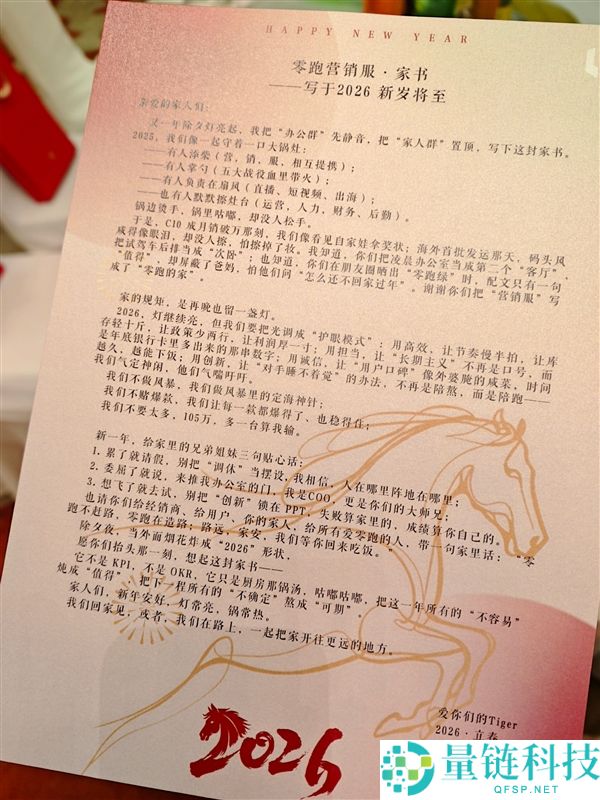 HAPPY NEW YEAR
零跑营销服·家书
——写于2026 新岁将至
亲爱的家人们：
又一年除夕灯亮起，我把“办公群”先静音，把“家人群”置顶，写下这封家书。
2025，我们像一起守着一口大锅灶：
——有人添柴（营，销，服，相互提携）；
——有人掌勺（五大战役血里带火）；
——有人负责在扇风（直播、短视频、出海）；
——也有人默默擦灶台（运营，人力，财务、后勤）。
锅边烫手，锅里咕嘟，却没人松手。
于是，C10 成月销破万那刻，我们像看见自家娃拿奖状；海外首批发运那天，码头风
咸得像眼泪，却没人擦，怕擦掉了妆。我知道，你们把凌晨办公室当成第二个“客厅”，
把试驾车后排当成“次卧”；也知道，你们在朋友圈晒出“零跑绿”时，配文只有一句
“值得”，却屏蔽了爸妈，怕他们问“怎么还不回家过年”。谢谢你们把“营销服”写
成了“零跑的家”。
家的规矩，是再晚也留一盏灯。
2026，灯继续亮，但我们要把光调成“护眼模式”：用高效，让节奏慢半拍，让库
存轻十斤，让政策少两行，让利润厚一寸；用担当，让“长期主义”不再是口号，而
是年底银行卡里多出来的那串数字；用诚信，让“用户口碑”像外婆脆的咸菜，时间
越久，越能下饭；用创新，让“对手睡不着觉”的办法，不再是陪熬，而是陪跑——
我们气定神闲，他们气喘吁吁。
我们不做风暴，我们做风暴里的定海神针；
我们不赌爆款，我们让每一款都爆得了、也稳得住；
我们不要太多，105万，多一台算我输。
新一年，给家里的兄弟姐妹三句贴心话：
1. 累了就请假，别把“调休”当摆设，我相信，人在哪里阵地在哪里；
2. 委屈了就说，来推我办公室的门，我是COO，更是你们的大师兄；
3. 想飞了就去试，别把“创新”锁在 PPT，失败算家里的，成绩算你自己的。
也请你们给经销商、给用户、你的家人，给所有爱零跑的人，带一句家里话：“零
跑不赶路，零跑在造路；路远，家安，我们等你回来吃饭。”
除夕夜，当外面烟花炸成“2026”形状，
愿你们抬头那一刻，想起这封家书——
它不是 KPI，不是 OKR，它只是厨房那锅汤，咕嘟咕嘟，把这一年所有的“不容易”
炖成“值得”，把下一程所有的“不确定”熬成“可期”。
家人们，新年安好，灯常亮，锅常热。
我们回家见，或者，我们在路上，一起把家开往更远的地方。
爱你们的Tiger
2026·立春
2026
量链科技
QFSP.NET